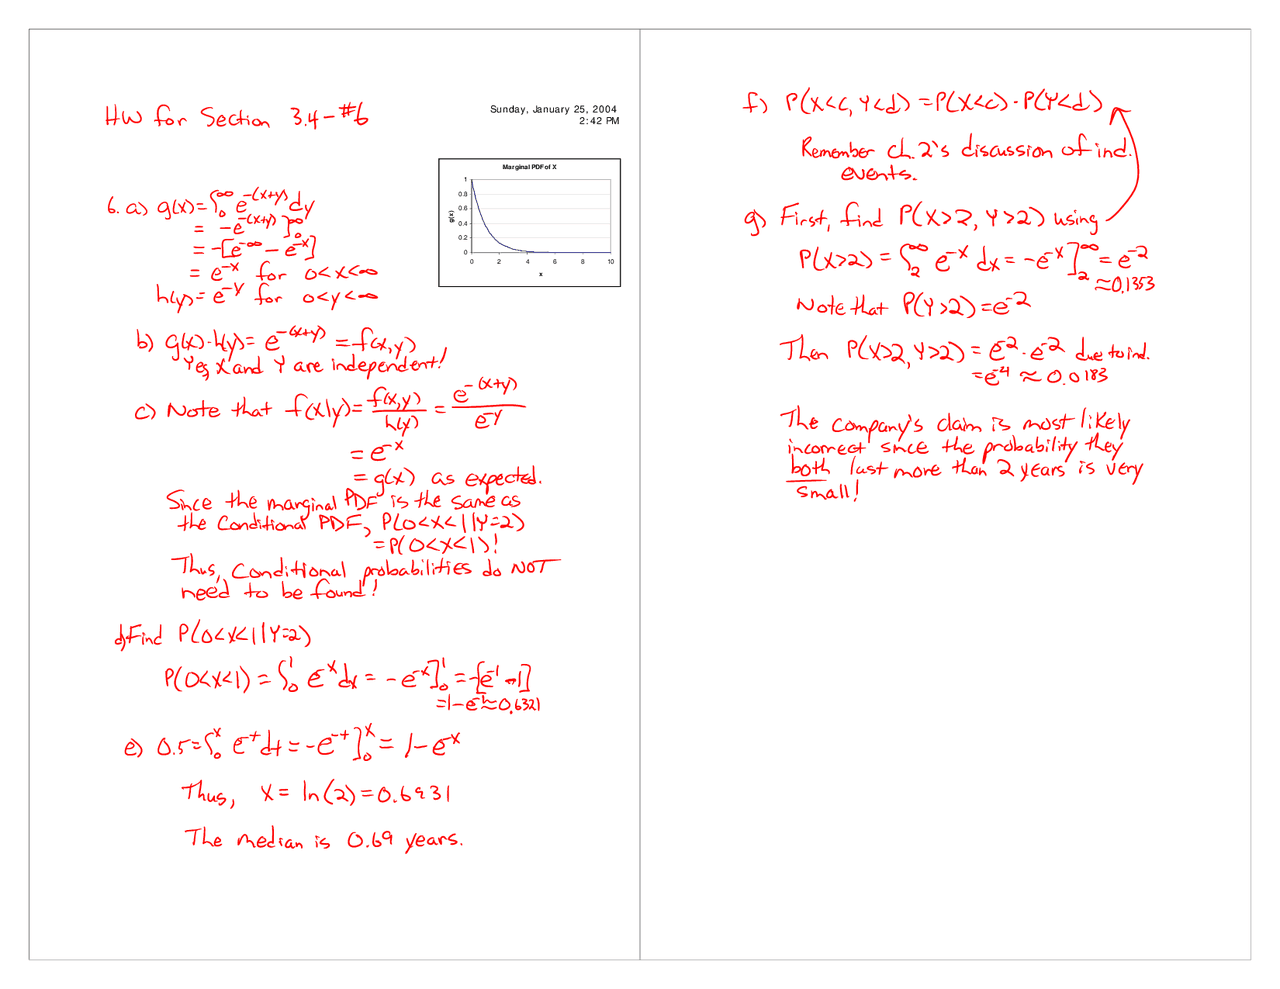 HW for Section 3.4-#6
Sunday, January 25, 2004
2:42 PM
Marginal PDF of X
g(x)
1
0.8
0.6
0.4
0.2
0
0 2 4 6 8 10
x
6. a) g(x)=∫₀^∞ e^-(x+y) dy
= -e^-(x+y)]₀^∞
= -[e^-∞ - e^-x]
= e^-x for 0<x<∞
h(y)= e^-y for 0<y<∞
b) g(x)·h(y)= e^-(x+y) = f(x,y)
Yes, X and Y are independent!
c) Note that f(x|y)= f(x,y)/h(y) = e^-(x+y)/e^-y
= e^-x
= g(x) as expected.
Since the marginal PDF is the same as
the conditional PDF, P(0<X<1|Y=2)
=P(0<X<1)!
Thus, conditional probabilities do NOT
need to be found!
d) Find P(0<X<1|Y=2)
P(0<X<1) = ∫₀^1 e^-x dx = -e^-x]₀^1 = -[e^-1 - 1]
=1-e^-1≈0.6321
e) 0.5=∫₀^x e^-t dt = -e^-t]₀^x = 1-e^-x
Thus, x = ln(2)=0.6931
The median is 0.69 years.
f) P(X<c, Y<d) =P(X<c)·P(Y<d)
Remember ch. 2's discussion of ind.
events.
g) First, find P(X>2, Y>2) using
P(X>2) = ∫₂^∞ e^-x dx = -e^-x]₂^∞ = e^-2
≈0.1353
Note that P(Y>2)=e^-2
Then P(X>2, Y>2) = e^-2·e^-2 due to ind.
=e^-4 ≈ 0.0183
The company's claim is most likely
incorrect since the probability they
both last more than 2 years is very
small!